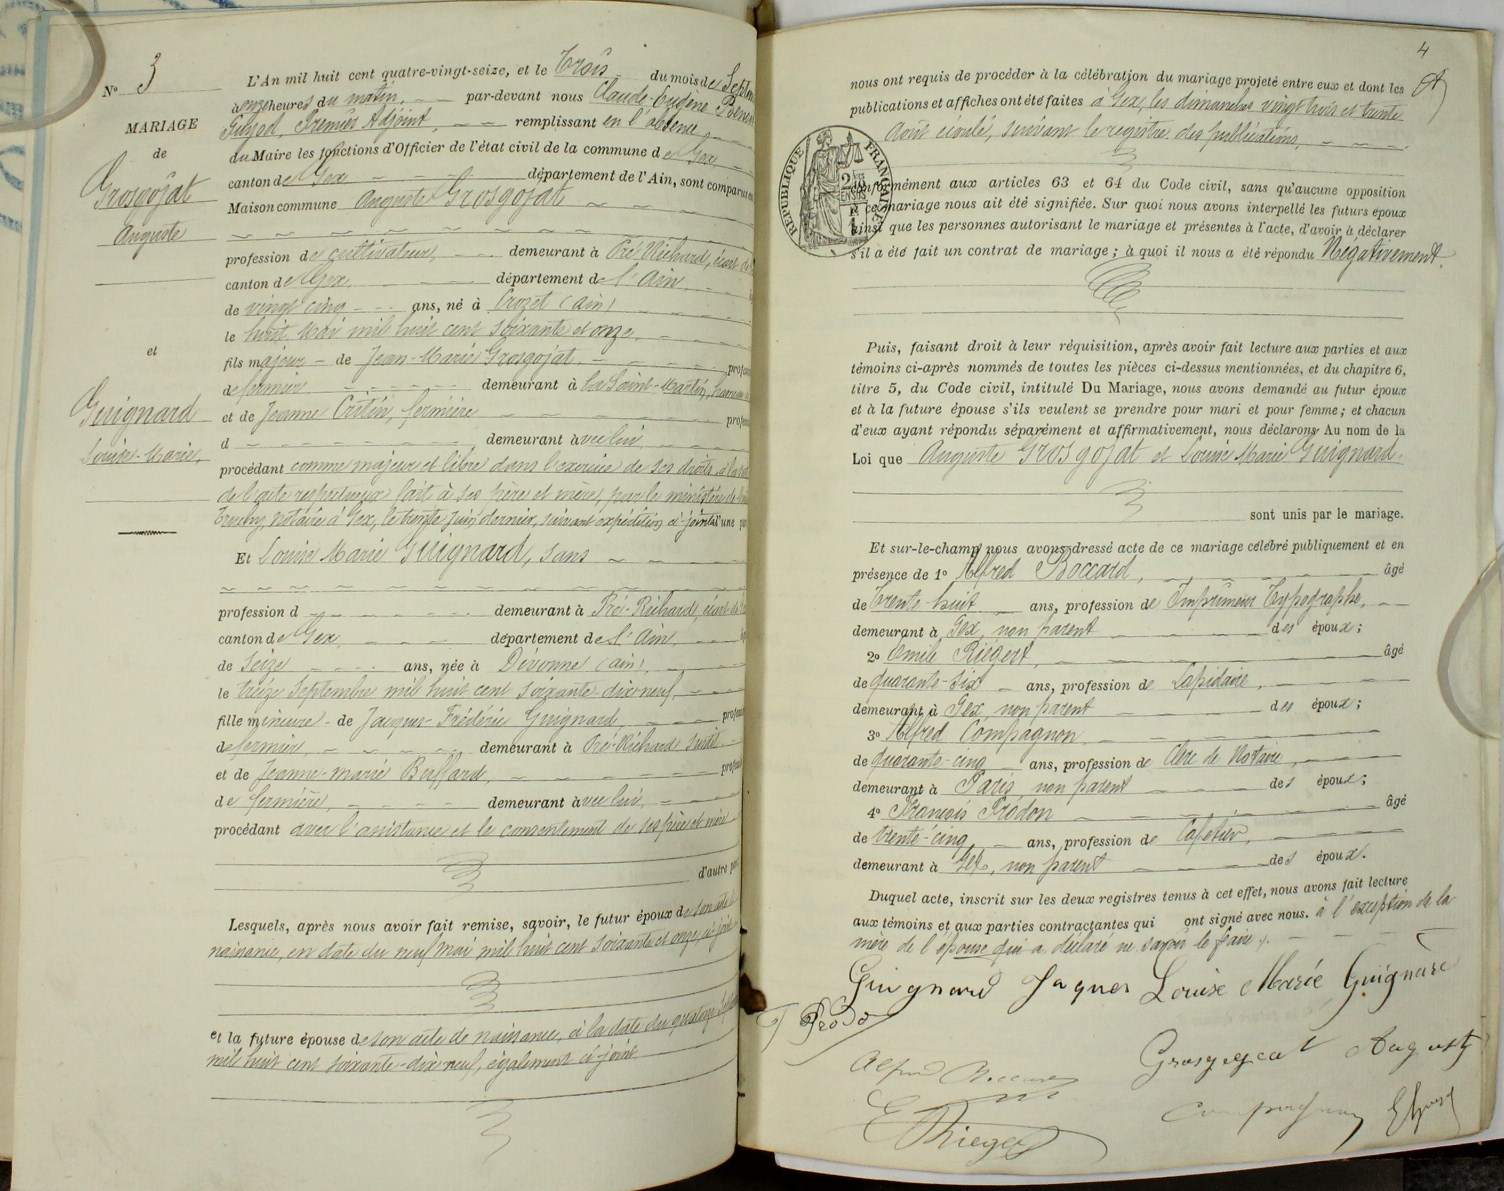 Nº 3
MARIAGE
de
Grosgojat
Auguste
et
Guignard
Louise-Marie,
L'An mil huit cent quatre-vingt-seize, et le Trois du mois de Septem
à onze heures du matin, par-devant nous Claude-Eugène
Premier Adjoint, remplissant en l'absence
du Maire les fonctions d'Officier de l'état civil de la commune de Gex,
canton de Gex département de l'Ain, sont comparus en
Maison commune Auguste Grosgojat
profession de cultivateur, demeurant à Pré-Richard, écart de
canton de Gex, département de l'Ain
de vingt cinq ans, né à Crozet (Ain)
le huit Mai mil huit cent soixante et onze
fils majeur de Jean-Marie Grosgojat, profes
de fermier demeurant à La Saint-Martin, hameau
et de Jeanne Critin, fermière profes
d demeurant avec lui
procédant comme majeur et libre dans l'exercice de ses droits,
de l'acte respectueux fait à ses père et mère, par le ministère de
notaire à Gex, le trente Juin dernier, suivant expédition ci-jointe d'une par
Et Louise Marie Guignard, sans
profession d demeurant à Pré-Richard, écart de
canton de Gex, département de l'Ain,
de seize ans, née à Divonne (Ain),
le treize Septembre mil huit cent soixante-dix-neuf,
fille mineure de Jacques-Frédéric Guignard, profes
de fermier demeurant à Pré-Richard susdit
et de Jeanne-marie Buffard, profes
de fermière, demeurant avec lui,
procédant avec l'assistance et le consentement de ses père et mère
d'autre par
Lesquels, après nous avoir fait remise, savoir, le futur époux de son acte de
naissance, en date du neuf Mai mil huit cent soixante et onze, ci-joint
et la future épouse de son acte de naissance, à la date du quatorze Sept
mil huit cent soixante-dix neuf, également ci-joint
4
nous ont requis de procéder à la célébration du mariage projeté entre eux et dont les
publications et affiches ont été faites à Gex, les dimanches vingt trois et trente
Août écoulé, suivant le registre des publications,
RÉPUBLIQUE FRANÇAISE
2
conformément aux articles 63 et 64 du Code civil, sans qu'aucune opposition
à ce mariage nous ait été signifiée. Sur quoi nous avons interpellé les futurs époux
ainsi que les personnes autorisant le mariage et présentes à l'acte, d'avoir à déclarer
s'il a été fait un contrat de mariage ; à quoi il nous a été répondu Négativement.
Puis, faisant droit à leur réquisition, après avoir fait lecture aux parties et aux
témoins ci-après nommés de toutes les pièces ci-dessus mentionnées, et du chapitre 6,
titre 5, du Code civil, intitulé Du Mariage, nous avons demandé au futur époux
et à la future épouse s'ils veulent se prendre pour mari et pour femme ; et chacun
d'eux ayant répondu séparément et affirmativement, nous déclarons Au nom de la
Loi que Auguste Grosgojat et Louise Marie Guignard.
sont unis par le mariage.
Et sur-le-champ nous avons dressé acte de ce mariage célébré publiquement et en
présence de 1º Alfred Boccard, âgé
de trente huit ans, profession de Imprimeur Typographe,
demeurant à Gex, non parent des époux ;
2º Emile Riegert, âgé
de quarante-six ans, profession de Lapidaire,
demeurant à Gex non parent des époux ;
3º Alfred Compagnon
de quarante-cinq ans, profession de Clerc de Notaire,
demeurant à Paris non parent des époux ;
4º François Prodon âgé
de trente-cinq ans, profession de Cafetier,
demeurant à Gex, non parent des époux.
Duquel acte, inscrit sur les deux registres tenus à cet effet, nous avons fait lecture
aux témoins et aux parties contractantes qui ont signé avec nous. à l'exception de la
mère de l'épouse qui a déclaré ne savoir le faire.
Guignard Jaques Louise Marie Guignard
Prodo
Grosgojeat Auguste
Alfred Boccard
Compagnon
E Rieger